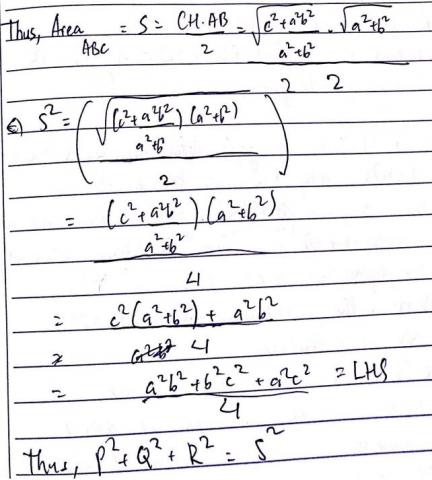 Thus, Area ABC = S = CH·AB / 2 = √(c²+a²b² / a²+b²) · √(a²+b²) / 2 2
⇔ S² = (√((c²+a²b² / a²+b²)(a²+b²)) / 2)²
= (c²+a²b² / a²+b²)(a²+b²) / 4
= c²(a²+b²) + a²b² / 4
= a²b²+b²c²+a²c² / 4 = LHS
Thus, P²+Q²+R² = S²